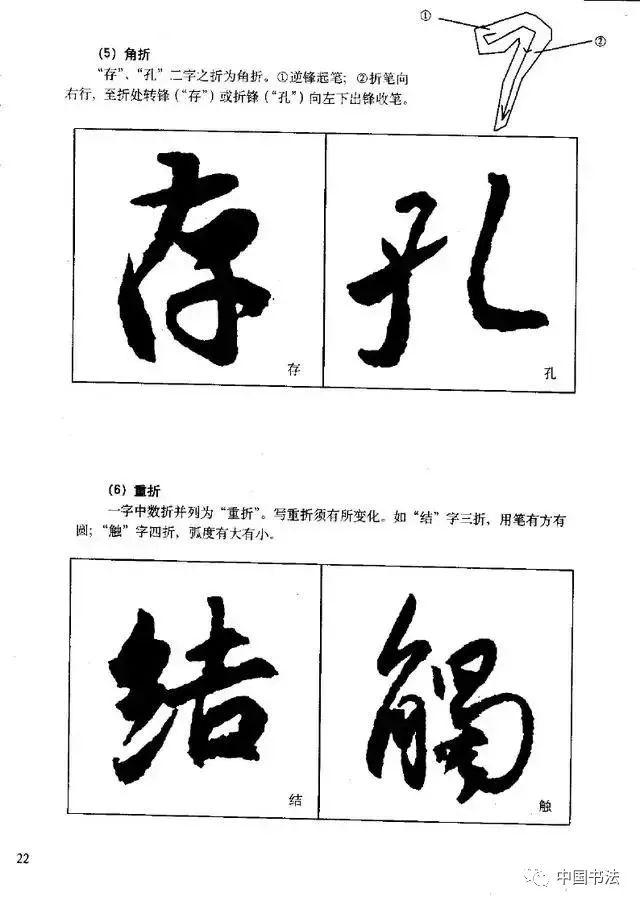 ①
②
(5) 角折
“存”、“孔”二字之折为角折。①逆锋起笔；②折笔向
右行，至折处转锋(“存”)或折锋(“孔”)向左下出锋收笔。
存 孔
存 孔
(6) 重折
一字中数折并列为“重折”。写重折须有所变化。如“结”字三折，用笔有方有
圆；“触”字四折，弧度有大有小。
结 觸
结 触
22
中国书法